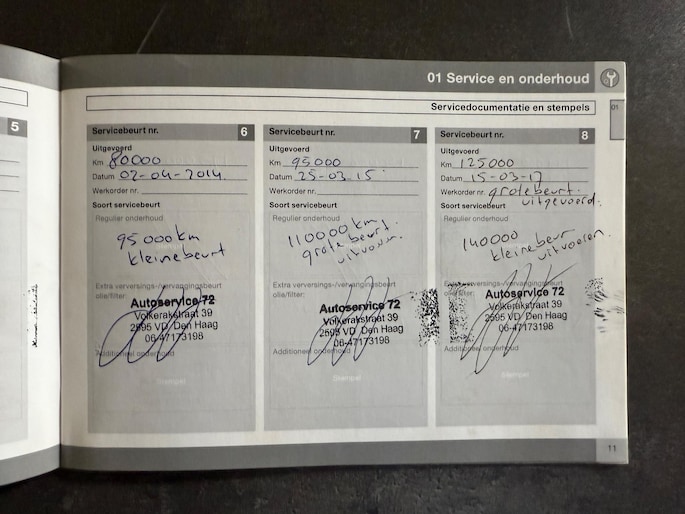 01 Service en onderhoud
01
Servicedocumentatie en stempels
5
Servicebeurt nr. 6
Uitgevoerd
Km 80000
Datum 02-04-2014.
Werkorder nr.
Soort servicebeurt
Regulier onderhoud
95000km
kleine beurt
Extra verversings-/vervangingsbeurt
olie/filter:
Autoservice 72
Volkerakstraat 39
2595 VD Den Haag
06-47173198
Additioneel onderhoud
Stempel
Servicebeurt nr. 7
Uitgevoerd
Km 95000
Datum 25-03.15
Werkorder nr.
Soort servicebeurt
Regulier onderhoud
110000 km.
grote beurt
uitvoeren.
Extra verversings-/vervangingsbeurt
olie/filter:
Autoservice 72
Volkerakstraat 39
2595 VD Den Haag
06-47173198
Additioneel onderhoud
Stempel
Servicebeurt nr. 8
Uitgevoerd
Km 125000
Datum 15-03-17
Werkorder nr. grote beurt.
uitgevoerd.
Soort servicebeurt
Regulier onderhoud
140000
kleine beur
uitvoeren.
Extra verversings-/vervangingsbeurt
olie/filter:
Autoservice 72
Volkerakstraat 39
2595 VD Den Haag
06-47173198
Additioneel onderhoud
Stempel
11